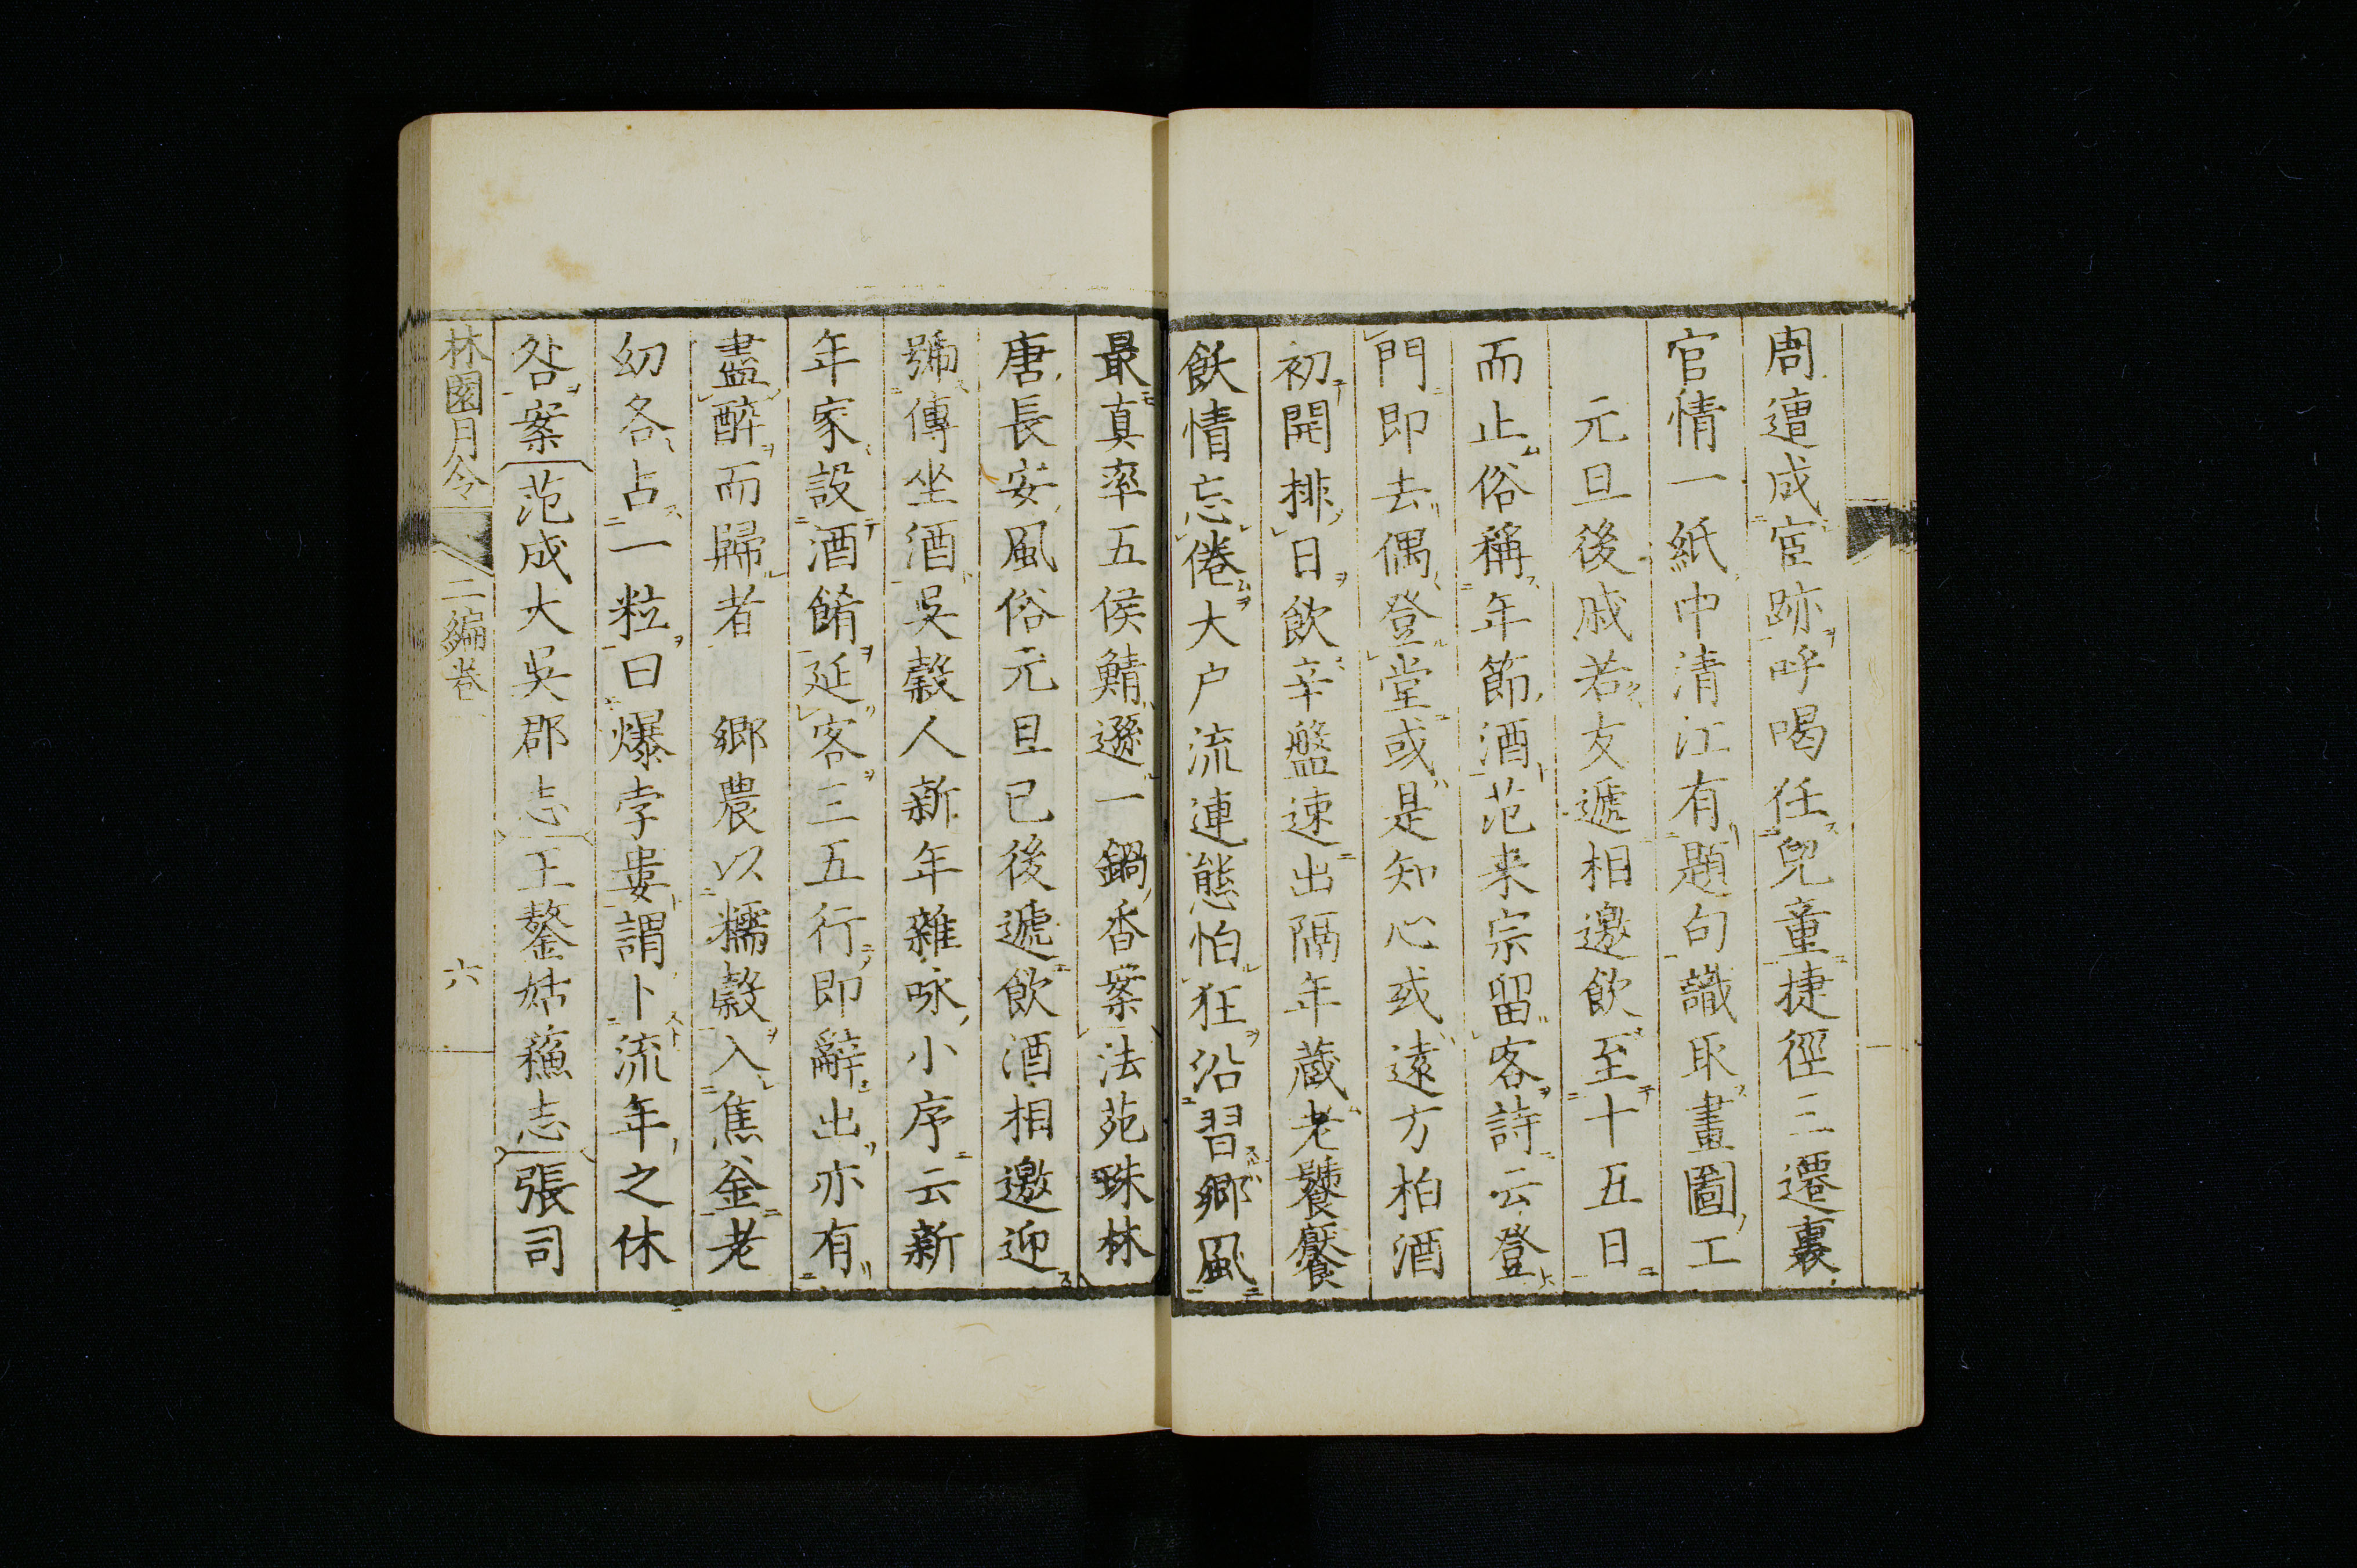 周遭成宦跡呼喝任兒童捷徑三遷裏
官情一紙中清江有題句識取畫圖工
元旦後戚若友遞相邀飲至十五日
而止俗稱年節酒范来宗留客詩云登
門即去偶登堂或是知心或遠方柏酒
初開排日飲辛盤速出隔年藏老饕餮
飫情忘倦大户流連態怕狂沿習鄉風
最真率五侯鯖遜一鍋香案法苑珠林
唐長安風俗元旦已後遞飲酒相邀迎
號傳坐酒吳穀人新年雜咏小序云新
年家設酒餚延客三五行即辭出亦有
盡醉而歸者　鄉農以糯穀入焦釜老
幼各占一粒曰爆孛婁謂卜流年之休
咎案范成大吳郡志王鏊姑蘓志張司
林園月令　二編卷　六